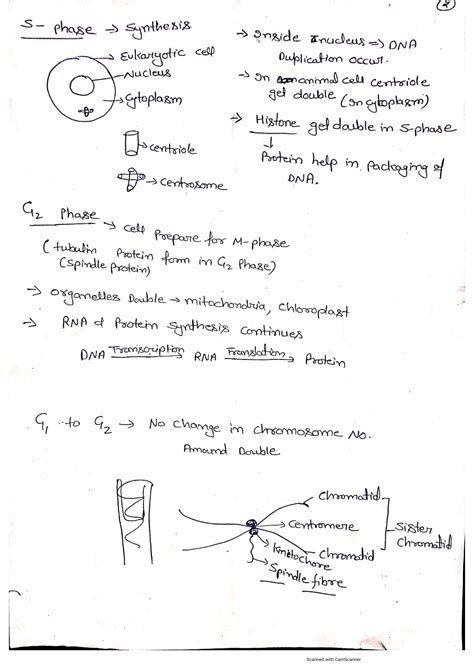 S- phase → Synthesis
→ Eukaryotic cell
→ Nucleus
→ Cytoplasm
→ centriole
→ centrosome
→ Inside nucleus ⇒ DNA
Duplication occur.
→ In animal cell centriole
get double (in cytoplasm)
→ Histone get double in S-phase
↓
Protein help in packaging of
DNA.
G2 Phase → Cell Prepare for M-phase
(tubulin Protein form in G2 Phase)
(Spindle Protein)
→ Organelles Double → mitochondria, Chloroplast
→ RNA & Protein Synthesis Continues
DNA Transcription → RNA Translation → Protein
G1 to G2 → No change in chromosome No.
Amound Double
Chromatid
→ Centromere
Sister
Chromatid
Chromatid
Kinetochore
Spindle fibre
Scanned with CamScanner